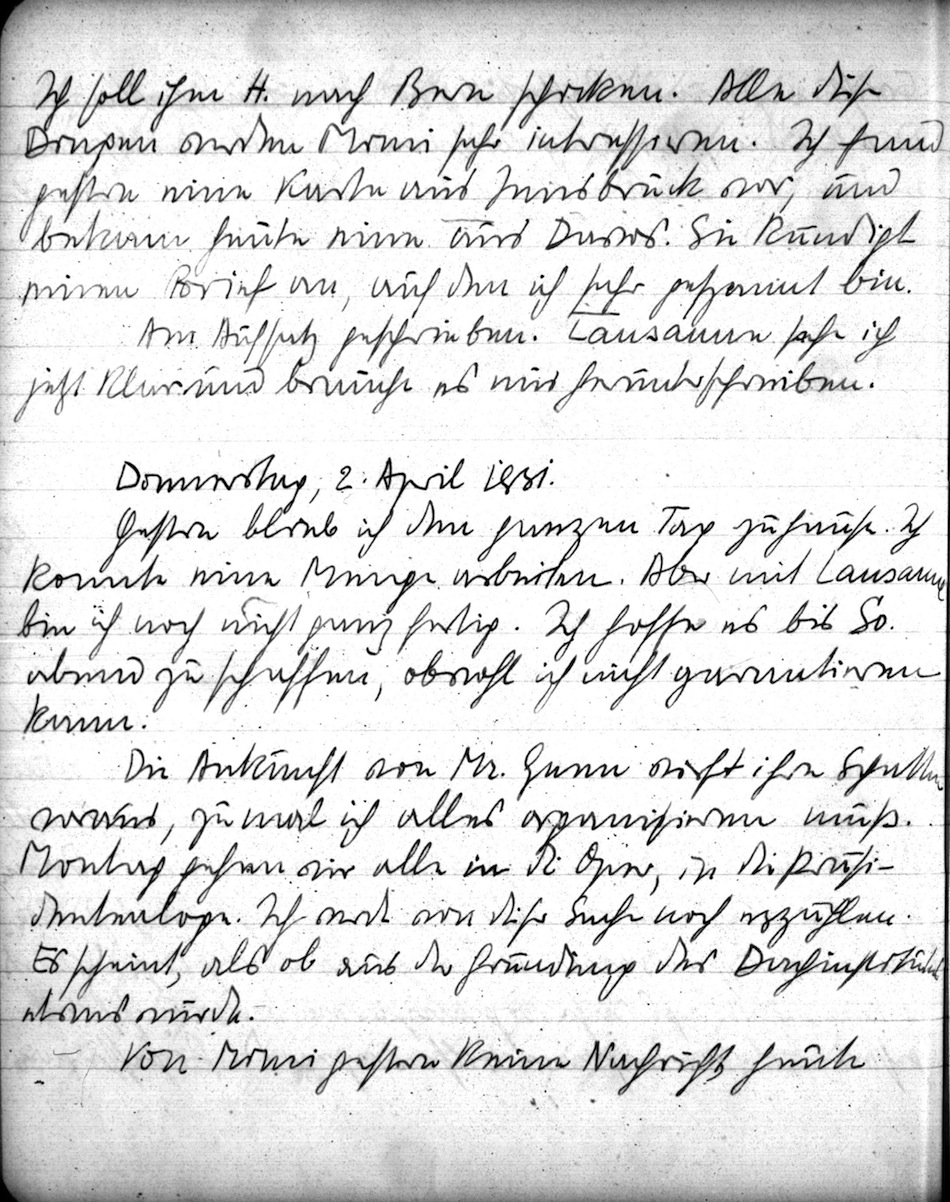 Ich soll ihm H. nach Bern schicken. Alle diese
Dragen werden Mimi sehr interessieren. Ich fand
gestern eine Karte aus Innsbruck vor, und
bekam heute eine aus Davos. Sie kündigt
einen Brief an, auf den ich sehr gespannt bin.
Am Aufsatz geschrieben. Lausanne sehe ich
jetzt klar und brauche es nur herunterschreiben.
Donnerstag, 2. April 1931.
Gestern blieb ich den ganzen Tag zuhause. Ich
konnte eine Menge arbeiten. Aber mit Lausanne
bin ich noch nicht ganz fertig. Ich hoffe es bis So.
abend zu schaffen, obwohl ich nicht garantieren
kann.
Die Ankunft von Mr. Gunn wirft ihre Schatten
voraus, zumal ich alles organisieren muß.
Montag gehen wir alle in die Oper, in die Präsi-
dentenloge. Ich werde von dieser Sache noch erzählen.
Es scheint, als ob aus der Gründung des
etwas würde.
Von Mimi gestern keine Nachricht heute